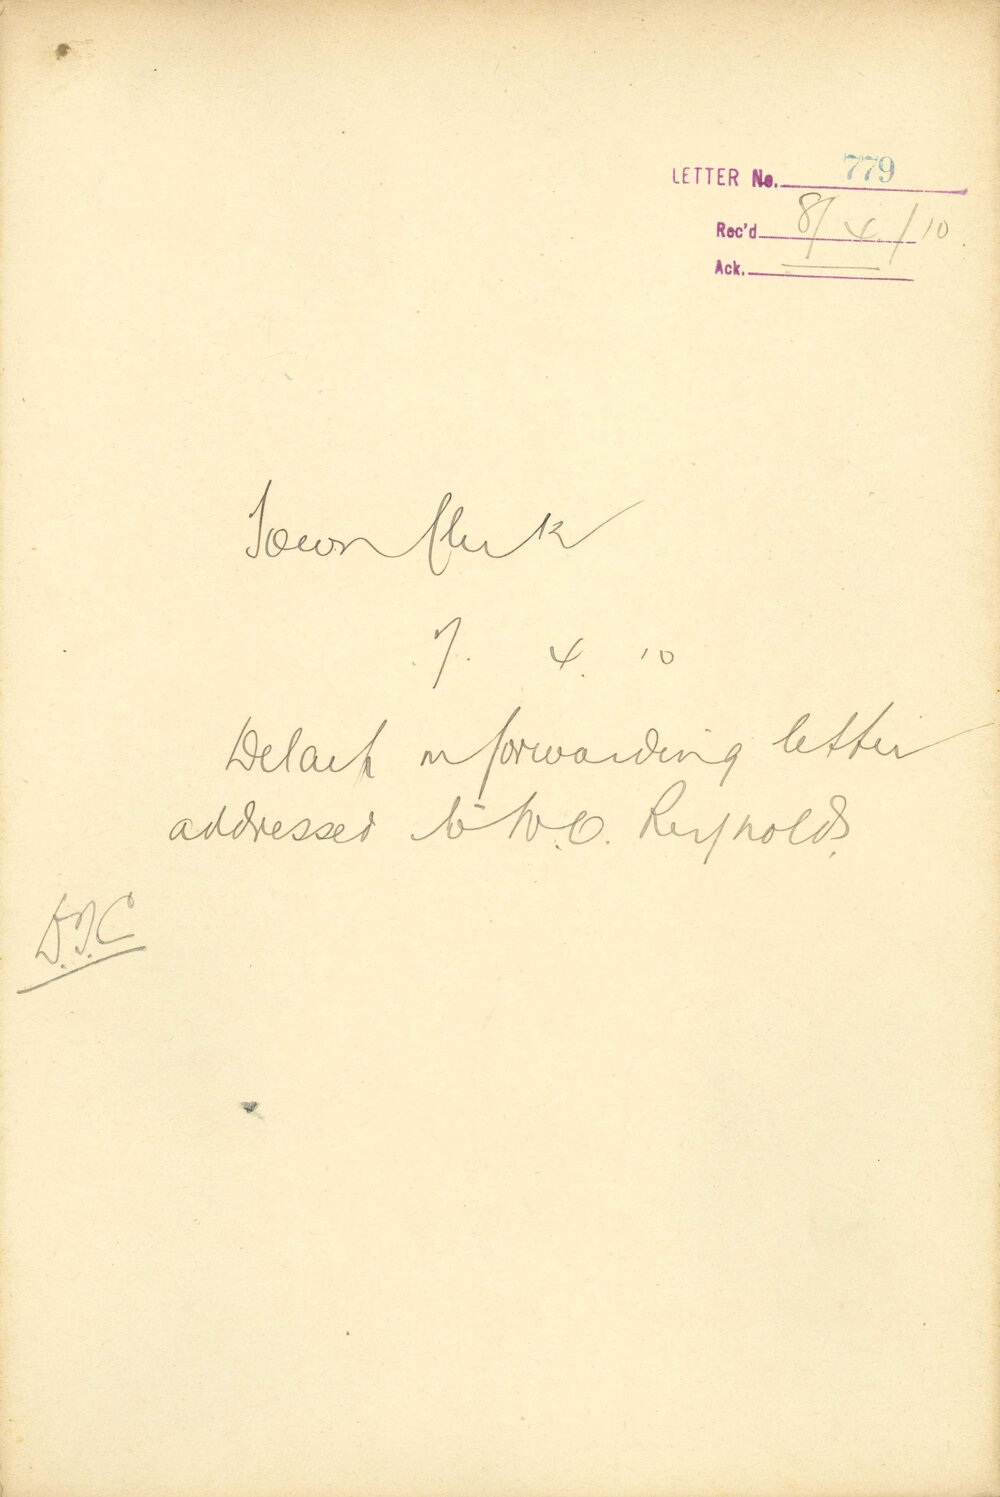 LETTER No. 779
Rec'd 8/4/10
Ack.
Town Clerk
7. 4. 10
Delay in forwarding letter
addressed to W.O. Reynolds.
D.T.C